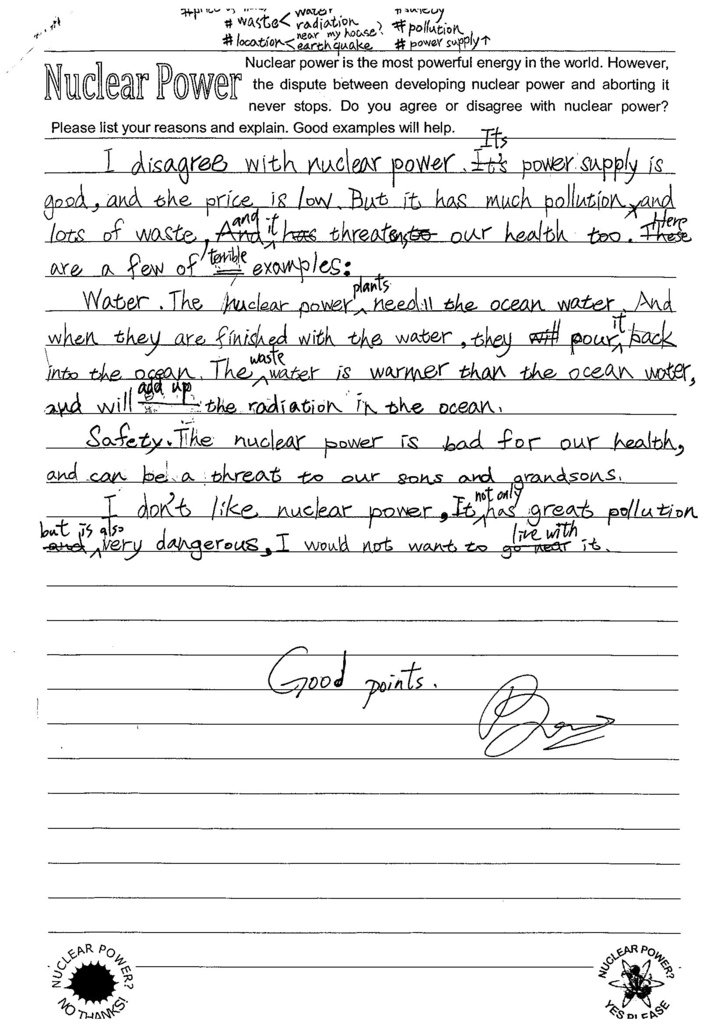 water
# waste < radiation # pollution
# location < near my house? earthquake # power supply ↑
Nuclear Power
Nuclear power is the most powerful energy in the world. However,
the dispute between developing nuclear power and aborting it
never stops. Do you agree or disagree with nuclear power?
Please list your reasons and explain. Good examples will help.
Its
I disagree with nuclear power. It's power supply is
good, and the price is low. But it has much pollution, and
lots of waste, And and it has threatens to our health too. These Here
are a few of terrible examples:
Water. The nuclear power plants need the ocean water. And
when they are finished with the water, they will pour it back
into the ocean. The waste water is warmer than the ocean water,
and will add up the radiation in the ocean.
Safety. The nuclear power is bad for our health,
and can be a threat to our sons and grandsons.
I don't like nuclear power, It not only has great pollution
and but is also very dangerous, I would not want to go near live with it.
Good points.
NUCLEAR POWER? NO THANKS!
NUCLEAR POWER? YES PLEASE